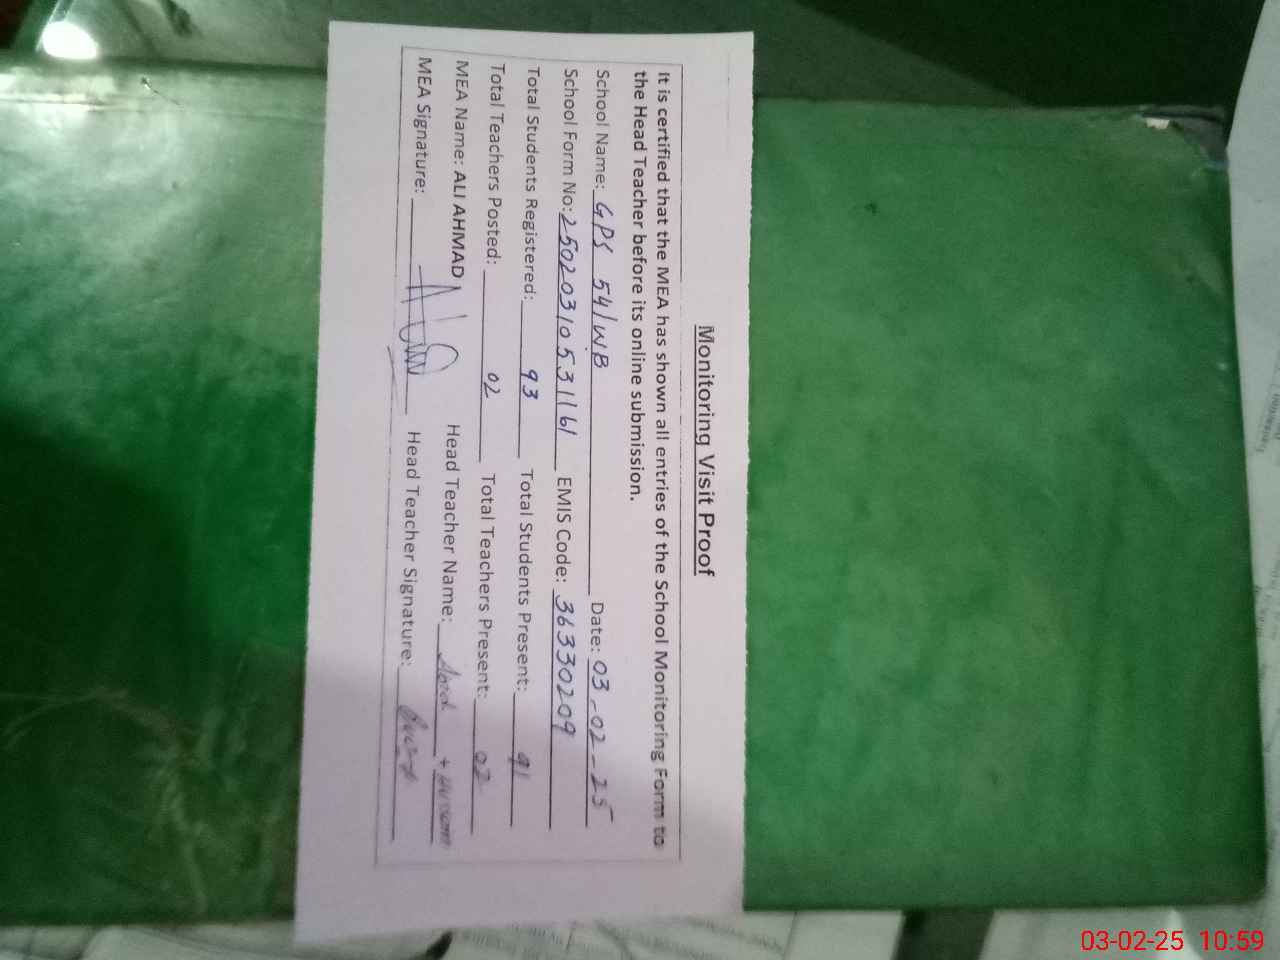 Monitoring Visit Proof
It is certified that the MEA has shown all entries of the School Monitoring Form to
the Head Teacher before its online submission.
School Name: GPS 54/WB Date: 03-02-25
School Form No: 25020310531161 EMIS Code: 36330209
Total Students Registered: 93 Total Students Present: 91
Total Teachers Posted: 02 Total Teachers Present: 02
MEA Name: ALI AHMAD Head Teacher Name:
MEA Signature: Head Teacher Signature:
03-02-25 10:59